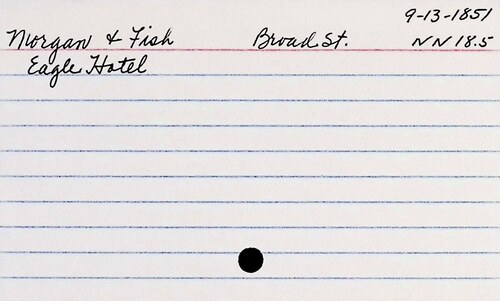 9-13-1851
Morgan & Fish Broad St. NN 18.5
Eagle Hotel